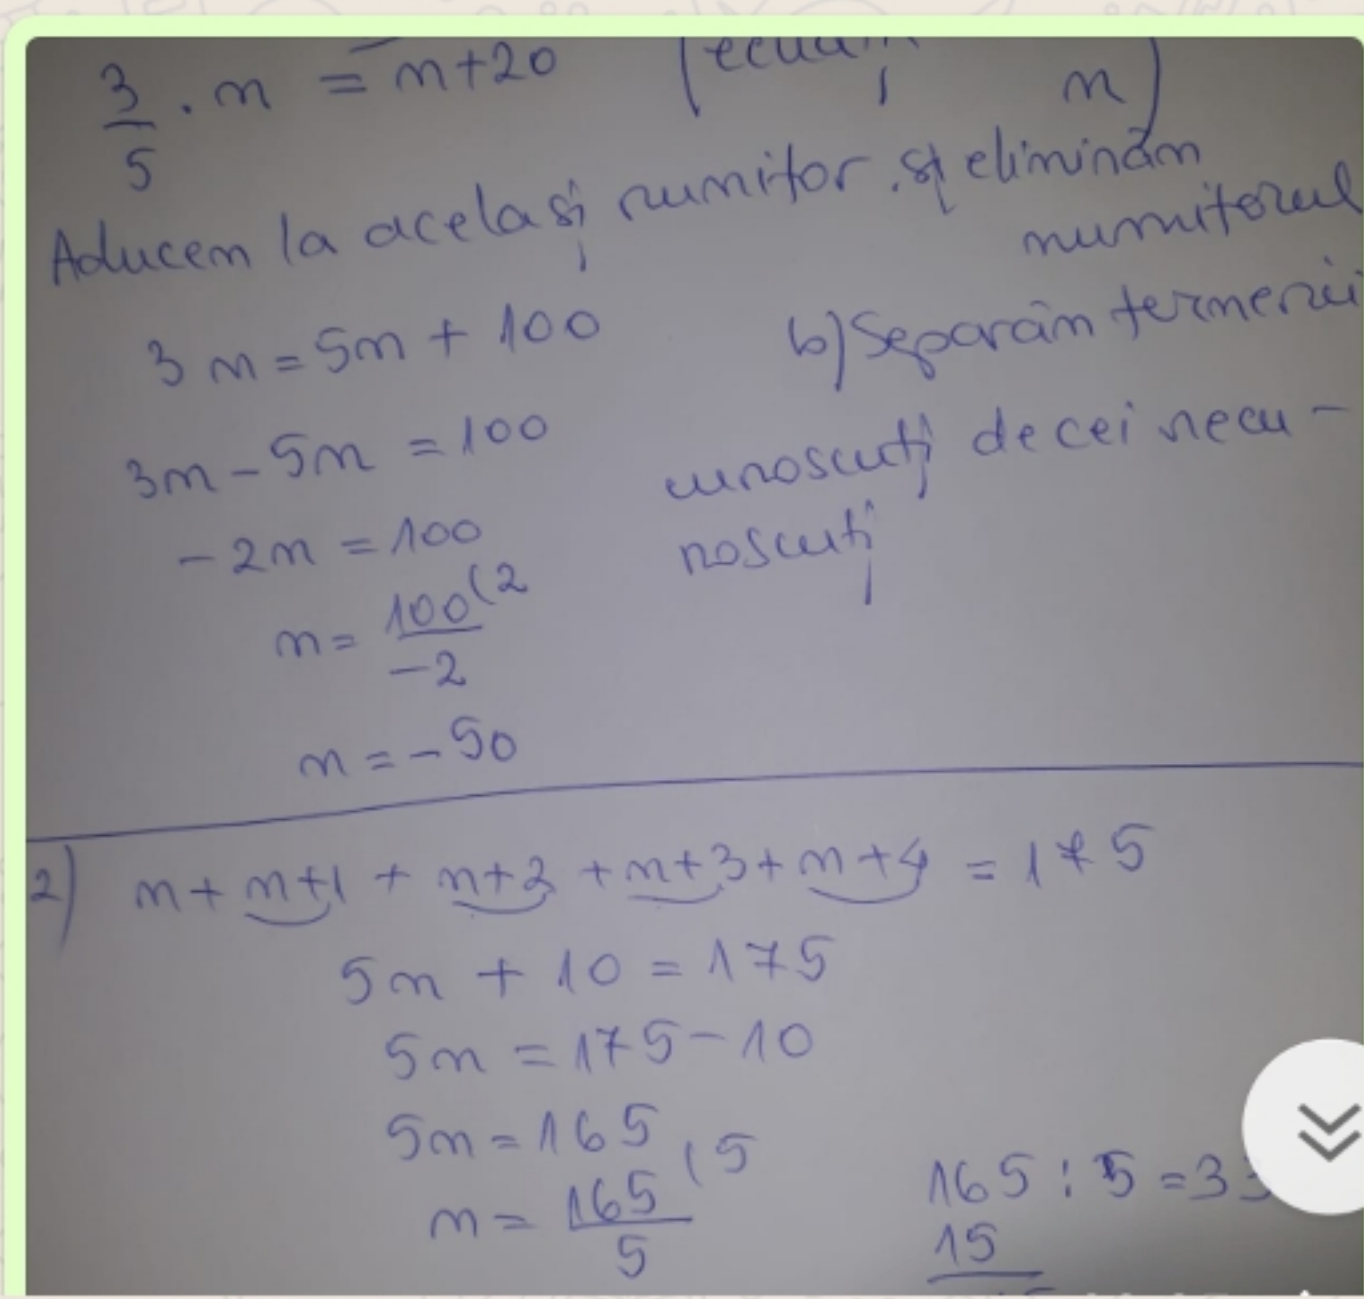 3/5 · n = n+20 (ecuați n)
Aducem la același numitor și eliminăm
numitorul
3n = 5n + 100 b) Separăm termenii
3n - 5n = 100 cunoscuți de cei necu-
-2n = 100 noscuți
n = 100/-2 (2
n = -50
2) n + n+1 + n+2 + n+3 + n+4 = 175
5n + 10 = 175
5n = 175 - 10
5n = 165
n = 165/5 (5 165 : 5 = 33
15